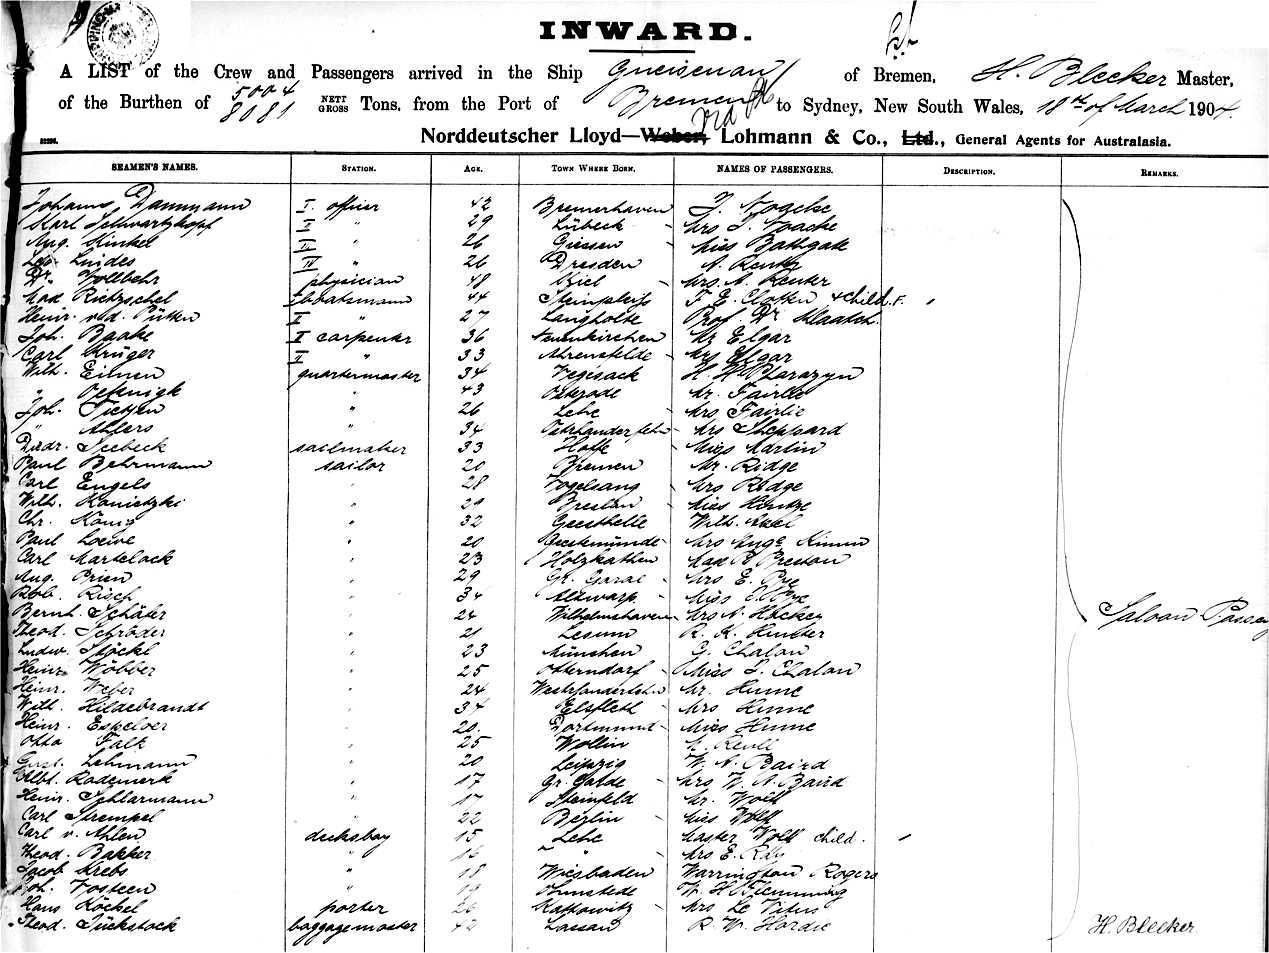 INWARD.
A LIST of the Crew and Passengers arrived in the Ship Gneisenau of Bremen, H. Bleeker Master,
of the Burthen of 5004 8081 NETT GROSS Tons, from the Port of Bremen via to Sydney, New South Wales, 18th of March 1904.
Norddeutscher Lloyd—Weber, Lohmann & Co., Ltd., General Agents for Australasia.
SEAMEN'S NAMES. STATION. AGE. TOWN WHERE BORN. NAMES OF PASSENGERS. DESCRIPTION. REMARKS.
Johanns Dammann I. officer 42 Bremerhaven
Karl Schwartzkopf II " 29 Lübeck Mrs
Aug. Hinkel III " 26 Giessen Miss Bathgate
Leo Luides IV " 26 Dresden A. Reuter
Dr. Vollbehr physician 48 Kiel Mrs. A. Reuter
Max Rietzschel I. boatsmann 44 Steinpleis F. E. + child. F.
Heinr. v/d. Pütten II " 27 Langholte Prof. Dr Klaatsch
Joh. Baake I carpenter 36 Neuenkirchen Mr Elgar
Carl Krüger II " 33 Ahrensfelde Mrs Elgar
Wilh. Eimen quartermaster 34 Vegesack H. H. Pharazyn
" " 43 Osterode Mr. Fairlie
Joh. Tietjen " 26 Lehe Mrs Fairlie
" Ahlers " 34 Mrs Sheppard
Diedr. Seebeck sailmaker 33 Miss Martin
Paul Behrmann sailor 20 Bremen Mr. Ridge
Carl Engels " 28 Vogelsang Mrs Ridge
Wilh. Konietzki " 29 Breslau Miss
Chr. König " 32 Geesthelle Wilh. Axel
Paul Loewe " 20 Geestemünde Mrs
Carl Martelock " 23 Holzkathen Max B Preston
Aug. Prien " 29 Gr. Garae Mrs E. Pye
Rob. Risch " 34 Altwarp Miss E. Pye
Bernh. Schäfer " 24 Wilhelmshaven Mrs A. Hacker
Theod. Schröder " 21 Lesum R. R. Hunter
Ludw. Stöckl " 23 München G. Chalon
Heinr. Wöbber " 25 Otterndorf Miss L. Chalon
Heinr. Weber " 24 Mr. Hume
Wilh. Hildebrandt " 34 Elsfleth Mrs Hume
Heinr. Eskelver " 20. Dortmund Miss Hume
Otto Falk " 25 Wollin
Gust. Lehmann " 20 Leipzig W. A. Baird
Albt. Rademerk " 17 Gr. Mrs W. A. Baird
Heinr. Schlarmann " 17 Steinfeld Mr. Woll
Carl Strempel " 22 Berlin Miss Woll
Carl v. Ahlen decksboy 15 Lehe Master Woll child.
Theod. Bakker " 16 " Mrs E. Ray
Jacob Krebs " 18 Wiesbaden Warrington Rogers
Joh. Vosteen " 19 Ohmstede W. H. Flemming
Hans Röckel porter Kattowitz Mrs Le
Theod. Tückstock baggagemaster 42 Lassan R. W. Hordie
Saloon
H. Bleeker